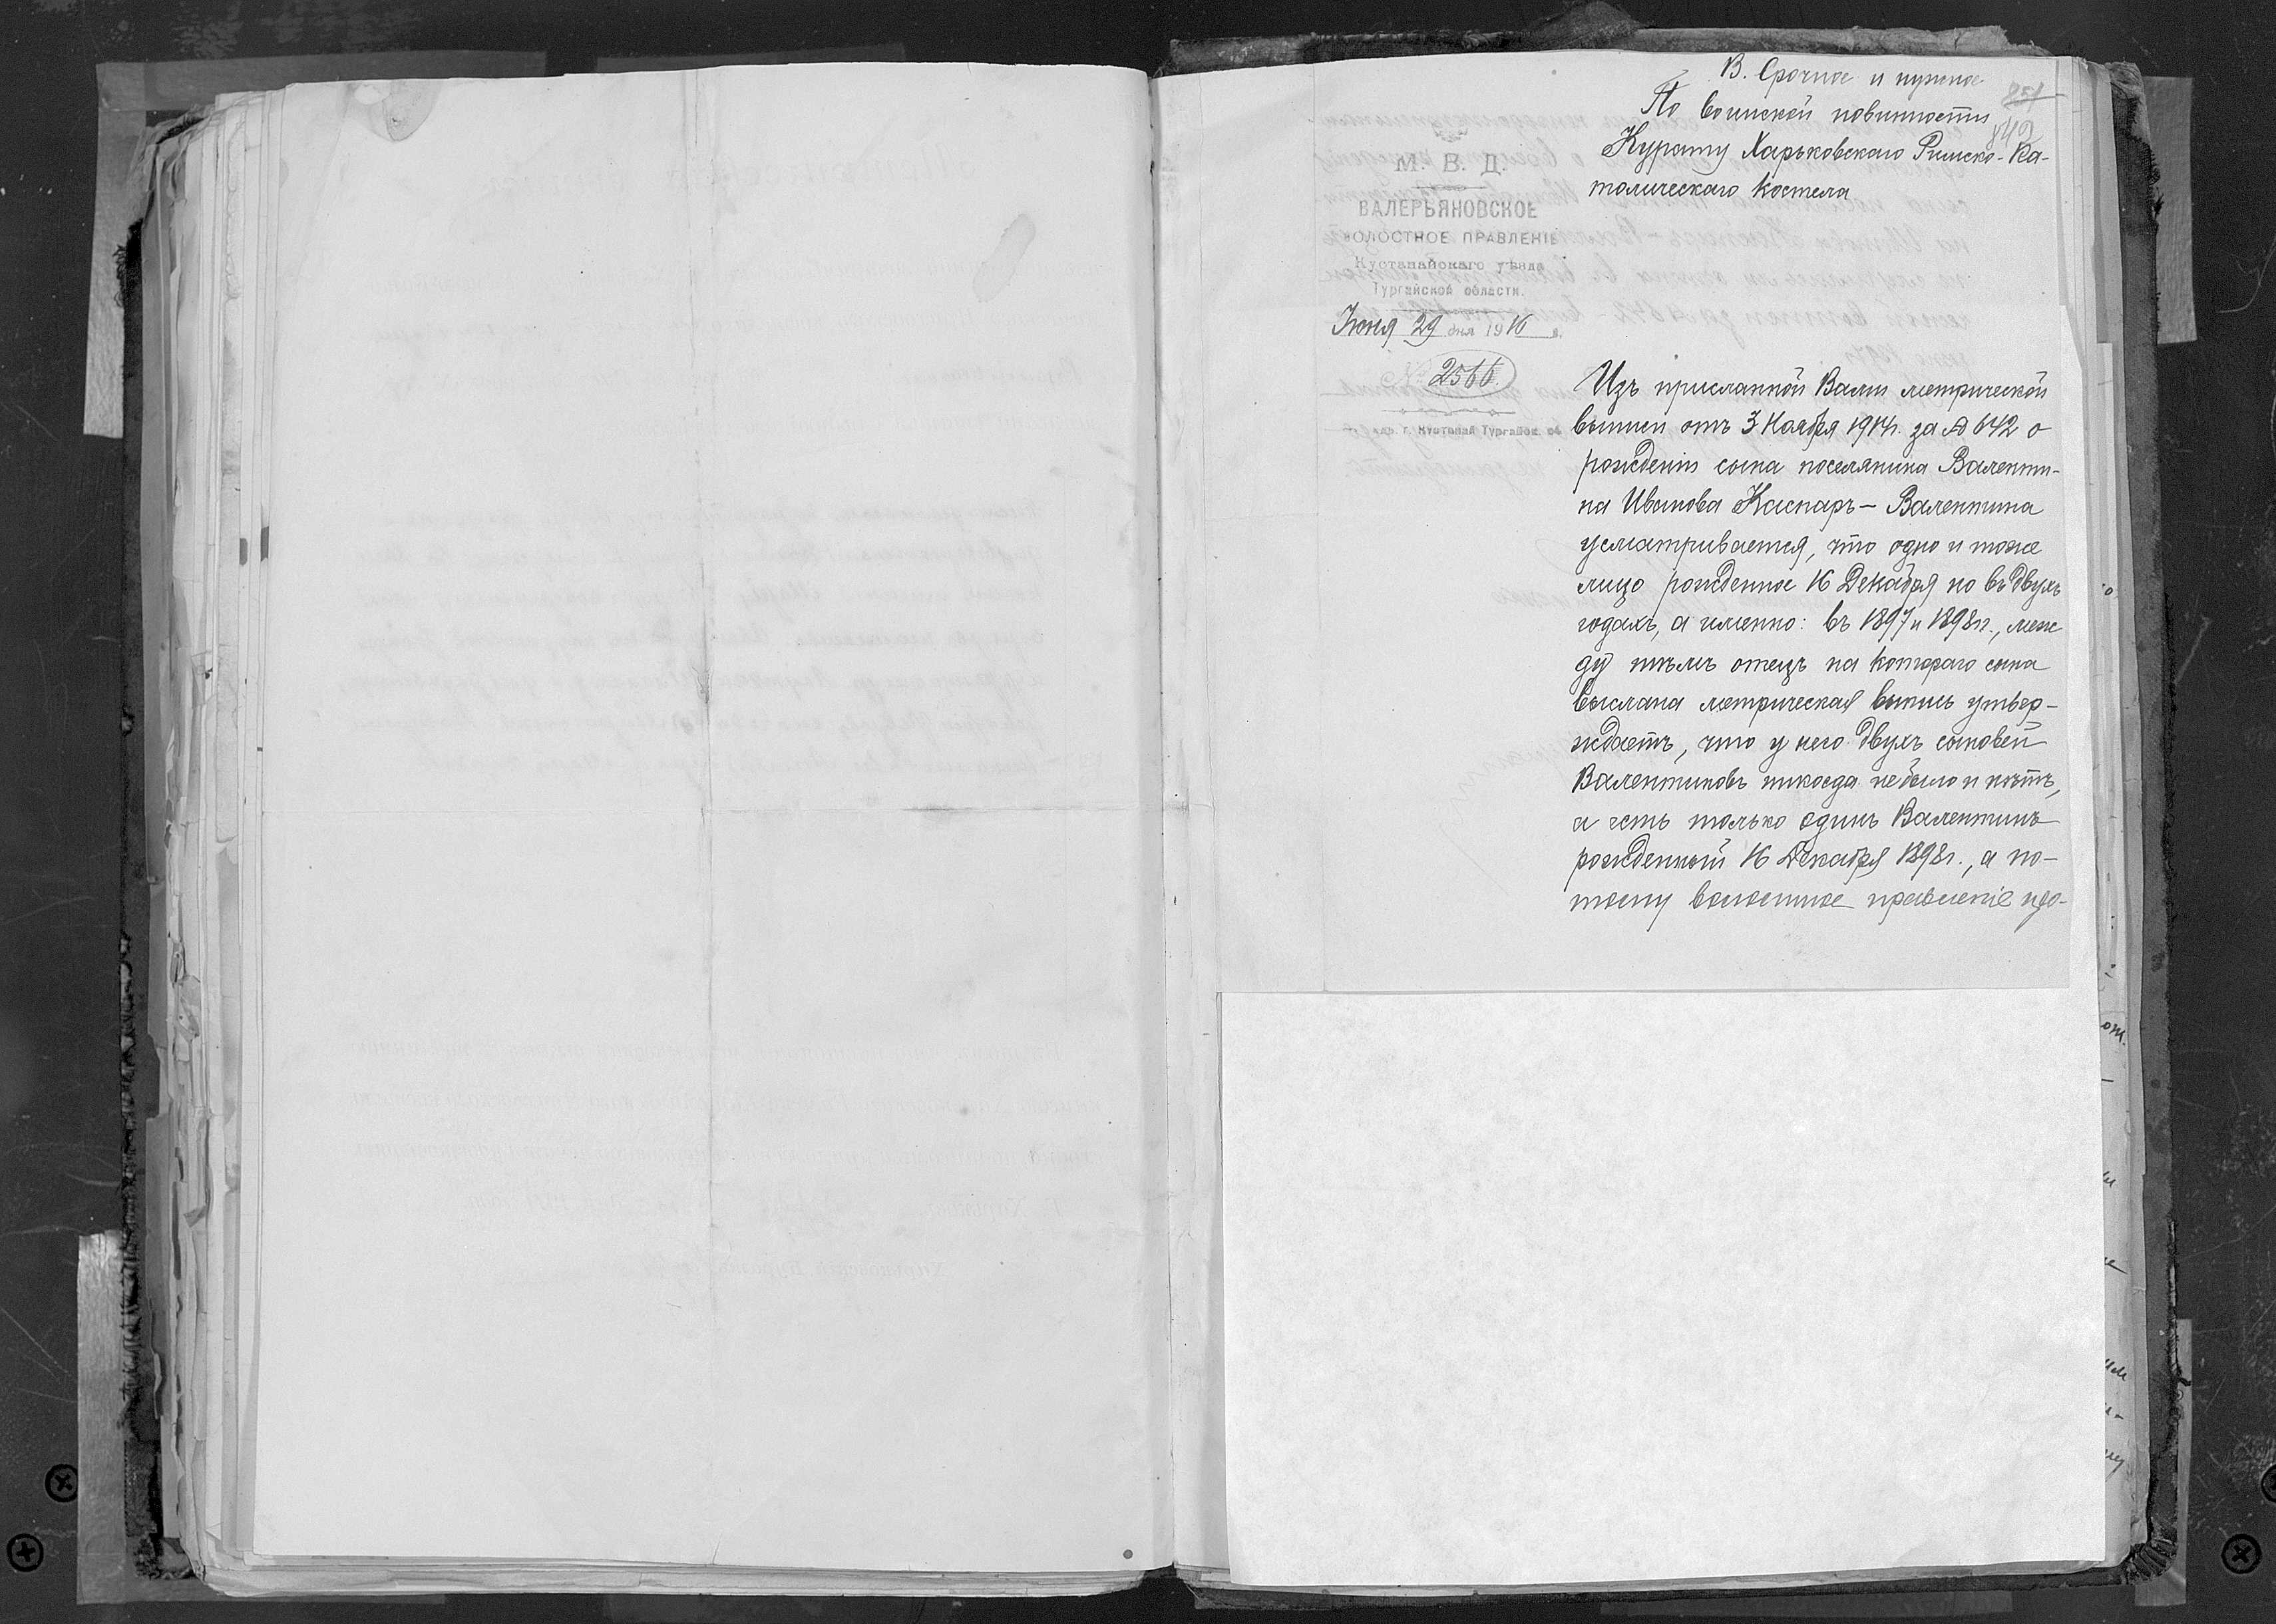 В. Срочное и нужное
851
По воинской повинности
842
Курату Харьковскаго Римско-Ка-
толическаго Костела
М. В. Д.
ВАЛЕРЬЯНОВСКОЕ
ВОЛОСТНОЕ ПРАВЛЕНІЕ
Кустанайскаго уѣзда
Тургайской области.
Іюня 29 дня 1916 г.
№ 2566.
г. Кустанай Тургайск. об
Изъ присланной Вами метрической
выписи отъ 3 Ноября 1914г. за № 642 о
рожденіи сына поселянина Валенти-
на Иванова Каспаръ – Валентина
усматривается, что одно и тоже
лицо рожденное 16 Декабря но въ двухъ
годахъ, а именно: въ 1897 и 1898г., меж
ду тѣмъ отецъ на котораго сына
выслана метрическая выпись утвер-
ждаетъ, что у него двухъ сыновей
Валентиновъ никогда не было и нѣтъ,
а есть только одинъ Валентинъ
рожденный 16 Декабря 1898г., а по-
тому волостное правленіе про-